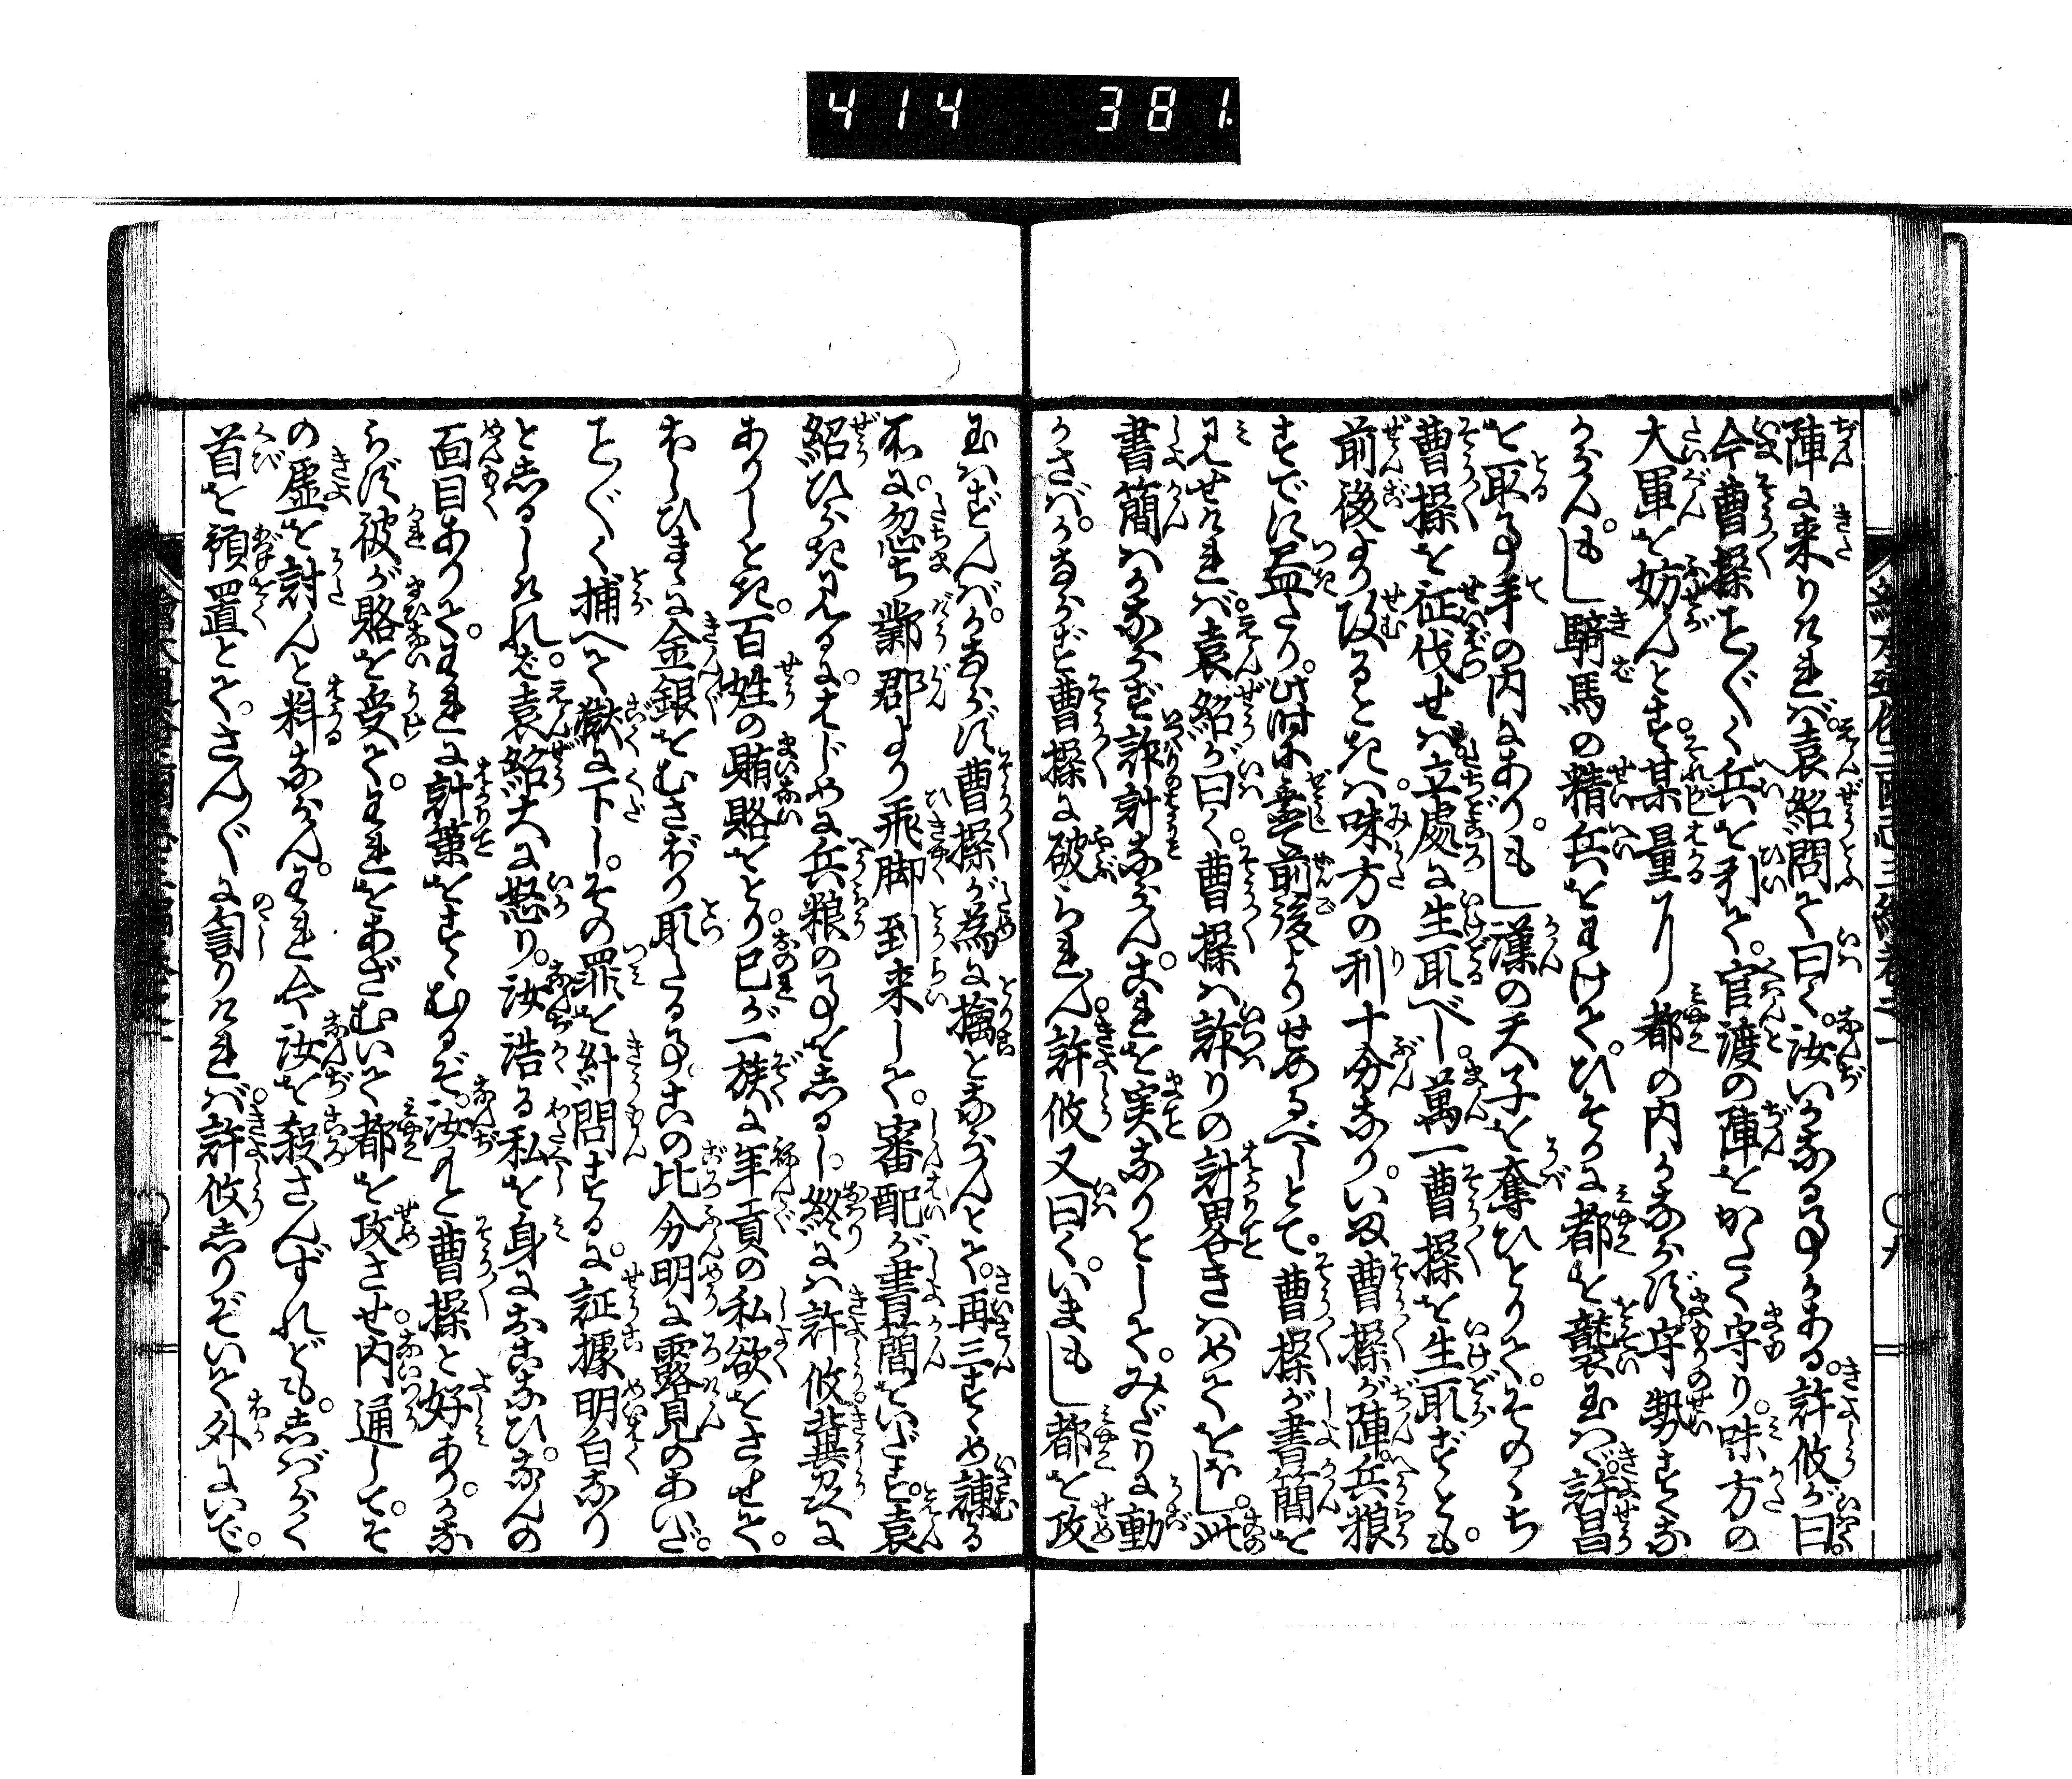 414 381
陣に来りければ。袁紹問て曰く。汝いかなる事かある。許攸が曰。
今曹操ことごとく兵を引て。官渡の陣をかたく守り。味方の
大軍を妨んとす。某量るに都の内かならず守勢すくな
からん。もし騎馬の精兵をわけて。ひそかに都を襲玉はゞ。許昌
を取事手の内にあり。もし漢の天子を奪ひとりて。そのゝち
曹操を征伐せば。立處に生取べし。萬一曹操を生取ずとも。
前後より攻るときは。味方の利十分なり。いま曹操が陣。兵粮
すでに盡たり。此時に乗て前後よりせめるべしとて。曹操が書簡を
見せければ。袁紹が曰く。曹操は詐りの計畧きはめておほし。此
書簡はかならず詐計ならん。これを実なりとして。みだりに動
かさば。かならず曹操に破られん。許攸又曰く。いまもし都を攻
玉はずんば。かならず曹操が為に擒となならんとて。再三すゝめ諌る
所に。忽ち鄴郡より飛脚到来して。審配が書簡をいだす。袁
紹ひらき見るに。はじめに兵粮の事をしるし。終には許攸冀州に
ありしとき。百姓の賄賂をとり。己が一族に年貢の私欲をさせて。
おゝひまゝに金銀をむさぼり取たる事。この比分明に露見のあいだ。
ことごとく捕へて獄に下し。その罪を糾問するに。証據明白なり
としるしければ。袁紹大に怒り。汝浩る私を身におこなひ。なんの
面目ありて。われに計策をすゝむるぞ。汝もと曹操と好あり。かな
らず彼が賂を受て。われをあざむいて都を攻させ。内通して。そ
の虚を討んと料ならん。われ今汝を殺さんずれども。しばらく
首を預置とて。さんざんに罵りければ。許攸しりぞいて外にいで。